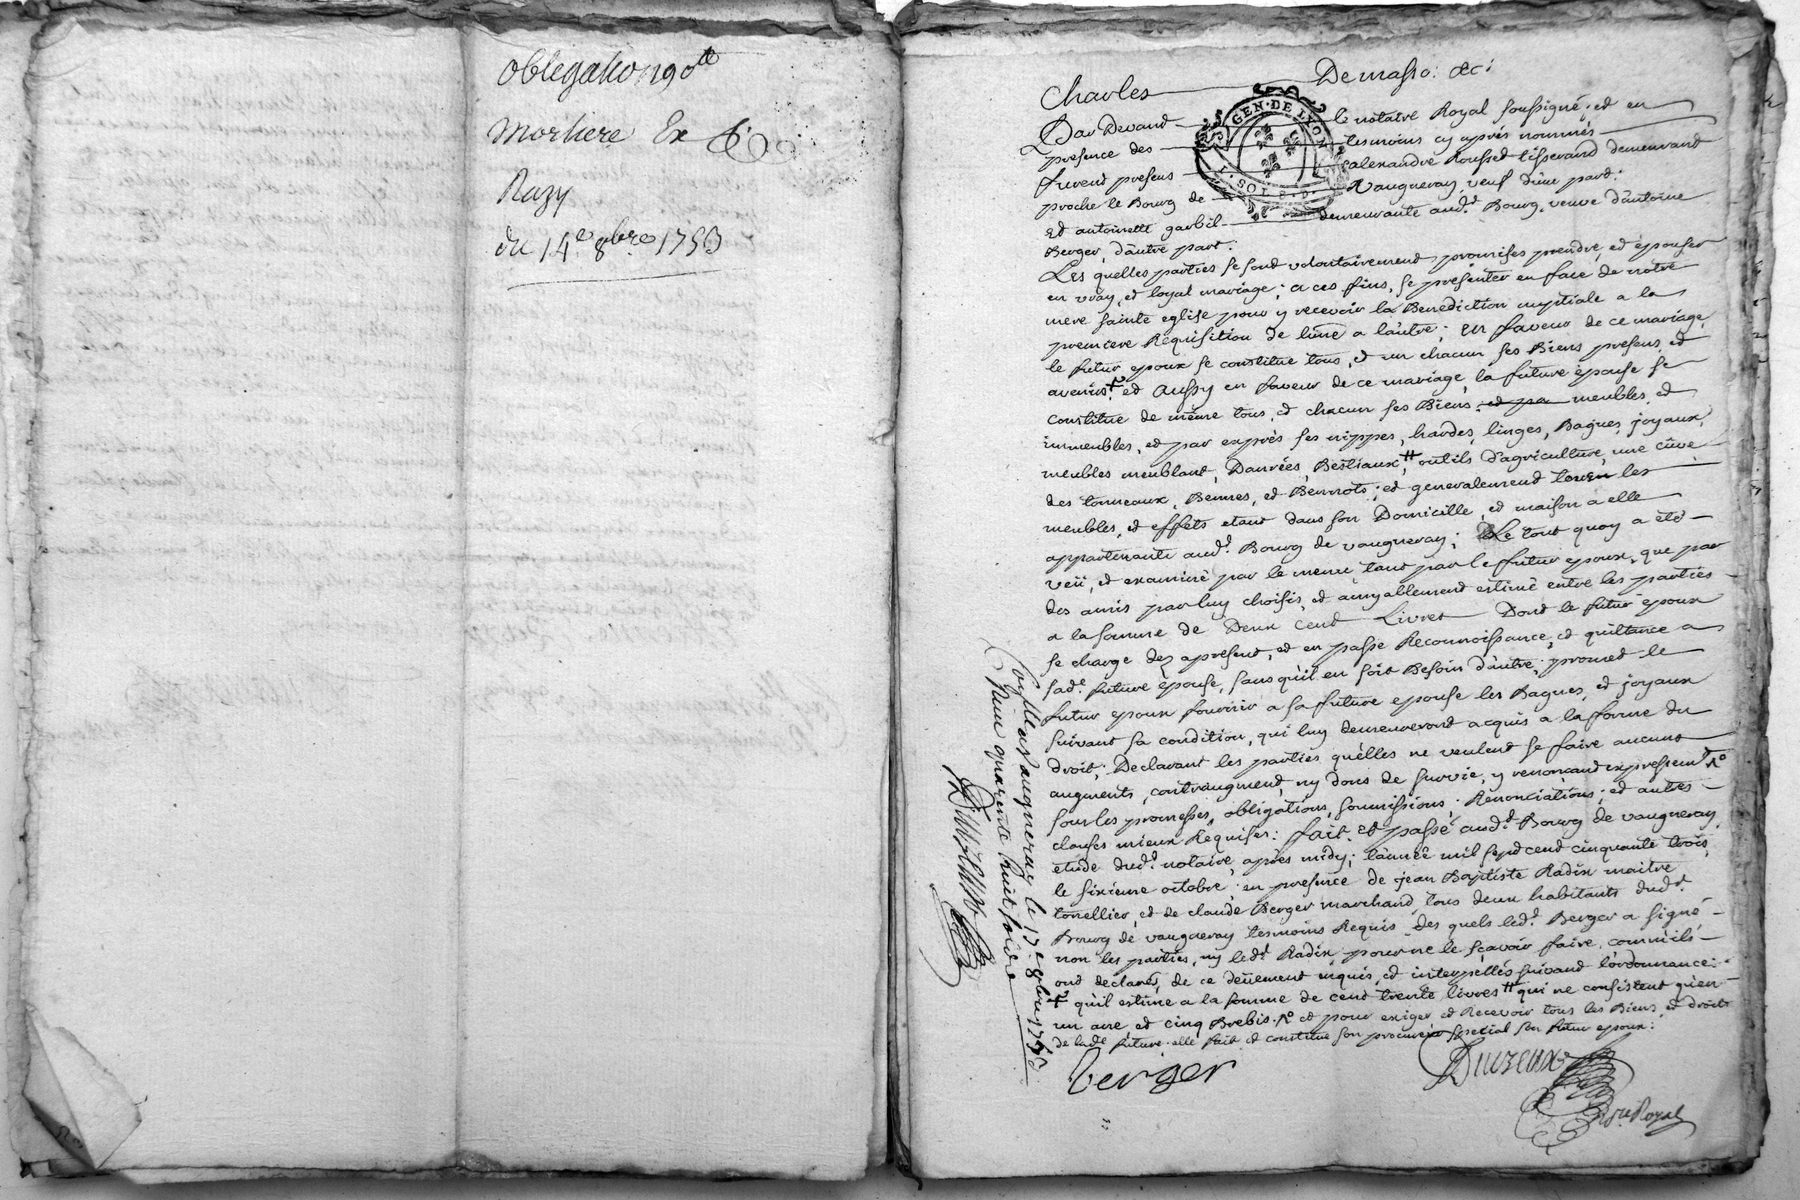 Oblegation 190 lt
Morliere Ex
Razy
du 14e 8bre 1753
Charles De masso: &c:
GEN·DE LYON
SOLS·D·
Par Devand le notaire Royal soussigné; et en
presence des tesmoins cy après nommés
furent presens alexandre Rousset tisserand demeurant
proche le Bourg de Vaugneray veuf d'une part:
Et antoinette garbil demeurante aud.t Bourg, veuve d'antoine
Berger, d'autre part:
Les quelles parties se sont volontairement promises prendre, et épouser
en vray, et loyal mariage; a ces fins, se présenter en face de notre
mere sainte eglise pour y recevoir la Benediction nuptiale a la
premiere Requisition de l'une a l'autre; En faveur de ce mariage,
le futur epoux se constitue tous, et un chacun ses Biens presens, et
avenirs ⁜ et Aussy en faveur de ce mariage, la future épouse se
constitue de même tous, et chacun ses Biens, et pa meubles, et
immeubles, et par exprès ses nippes, hardes, linges, Bagues, joyaux,
meubles meublant, Danrées, Bestiaux, # outils d'agriculture, une cüve
des tonneaux, Bennes, et Bennots; et generalement tous les
meubles, et effets etant dans son Domicille, et maison a elle
appartenante aud.t Bourg de vaugneray; Le tout quoy a été
veü, et examiné par le menu tant par le futur epoux, que par
des amis par luy choisis, et aimyablement estimé entre les parties
a la somme de Deux cent Livres Dont le futur epoux
se charge dez apresent, et en passe Reconnoissance, et quittance a
sad.e future epouse, sans qu'il en soit Besoin d'autre; promet le
futur epoux fournir a sa future epouse les Bagues, et joyaux
suivant sa condition, qui luy demeureront acquis a la forme du
droit; Declarant les parties qu'elles ne veulent se faire aucuns
augments, contraugment, ny dons de survie, y renonçant expressem.t
sous les promesses, obligations, soumissions, Renonciations, et autres
clauses mieux Requises: fait, Et passé aud.t Bourg de vaugneray,
étude dud.t notaire, après midy; l'année mil sept cent cinquante trois,
le sixieme octobre; en presence de jean Baptiste Radix maitre
tonellier, et de claude Berger marchand, tous deux habitants dud.t
Bourg de vaugneray tesmoins Requis, des quels led.t Berger a signé
non les parties, ny led.t Radix pour ne le sçavoir faire, comm'ils
ont declaré, de ce deüement enquis, et interpellés suivant l'ordonnance:
⁜ qu'il estime a la somme de cent trente livres # qui ne consistent qu'en
un ane, et cinq Brebis. et pour exiger et Recevoir tous les Biens, et droits
de lad.e future elle fait et constitue son procureur special son futur epoux:
Berger
N.re Royal
vaugneray le 17e 8bre 1753